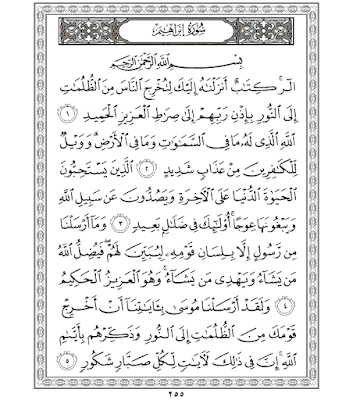 سُورَةُ إِبْرَاهِيمَ
بِسْمِ اللَّهِ الرَّحْمَٰنِ الرَّحِيمِ
الٓرۚ كِتَٰبٌ أَنزَلْنَٰهُ إِلَيْكَ لِتُخْرِجَ النَّاسَ مِنَ الظُّلُمَٰتِ
إِلَى النُّورِ بِإِذْنِ رَبِّهِمْ إِلَىٰ صِرَٰطِ الْعَزِيزِ الْحَمِيدِ ١
اللَّهِ الَّذِي لَهُۥ مَا فِي السَّمَٰوَٰتِ وَمَا فِي الْأَرْضِۗ وَوَيْلٌ
لِّلْكَٰفِرِينَ مِنْ عَذَابٍ شَدِيدٍ ٢ الَّذِينَ يَسْتَحِبُّونَ
الْحَيَوٰةَ الدُّنْيَا عَلَى الْءَاخِرَةِ وَيَصُدُّونَ عَن سَبِيلِ اللَّهِ
وَيَبْغُونَهَا عِوَجًاۚ أُو۟لَٰٓئِكَ فِي ضَلَٰلٍۭ بَعِيدٍ ٣ وَمَآ أَرْسَلْنَا
مِن رَّسُولٍ إِلَّا بِلِسَانِ قَوْمِهِۦ لِيُبَيِّنَ لَهُمْۖ فَيُضِلُّ اللَّهُ
مَن يَشَآءُ وَيَهْدِي مَن يَشَآءُۚ وَهُوَ الْعَزِيزُ الْحَكِيمُ
٤ وَلَقَدْ أَرْسَلْنَا مُوسَىٰ بِـَٔايَٰتِنَآ أَنْ أَخْرِجْ
قَوْمَكَ مِنَ الظُّلُمَٰتِ إِلَى النُّورِ وَذَكِّرْهُم بِأَيَّىٰمِ
اللَّهِۚ إِنَّ فِي ذَٰلِكَ لَءَايَٰتٍ لِّكُلِّ صَبَّارٍ شَكُورٍ ٥
٢٥٥